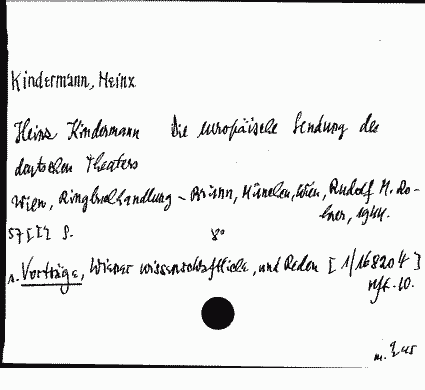 Kindermann, Heinz
Heinz Kindermann Die europäische Sendung des
deutschen Theaters
Wien, Ringbuchhandlung - Brünn, München, Wien, Rudolf M. Ro-
hrer, 1944.
57 [I] S. 8°
s. Vorträge, Wiener wissenschaftliche, und Reden [1/168204]
Hft. 10.